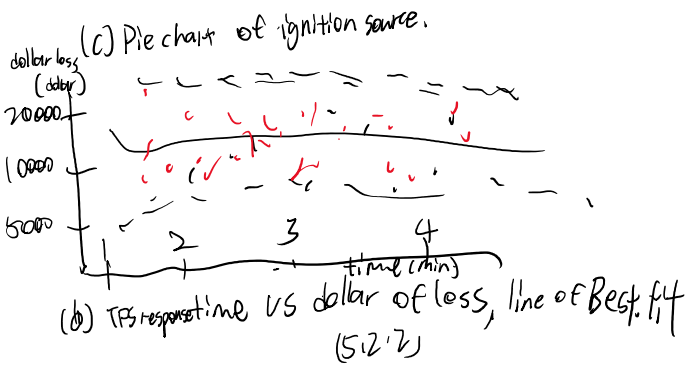 (c) Pie chart of ignition source.
dollar loss
(dollar)
20000
10000
5000
1 2 3 4
time (min)
(b) TFS response time vs dollar of loss, line of Best fit
(5.2.2)